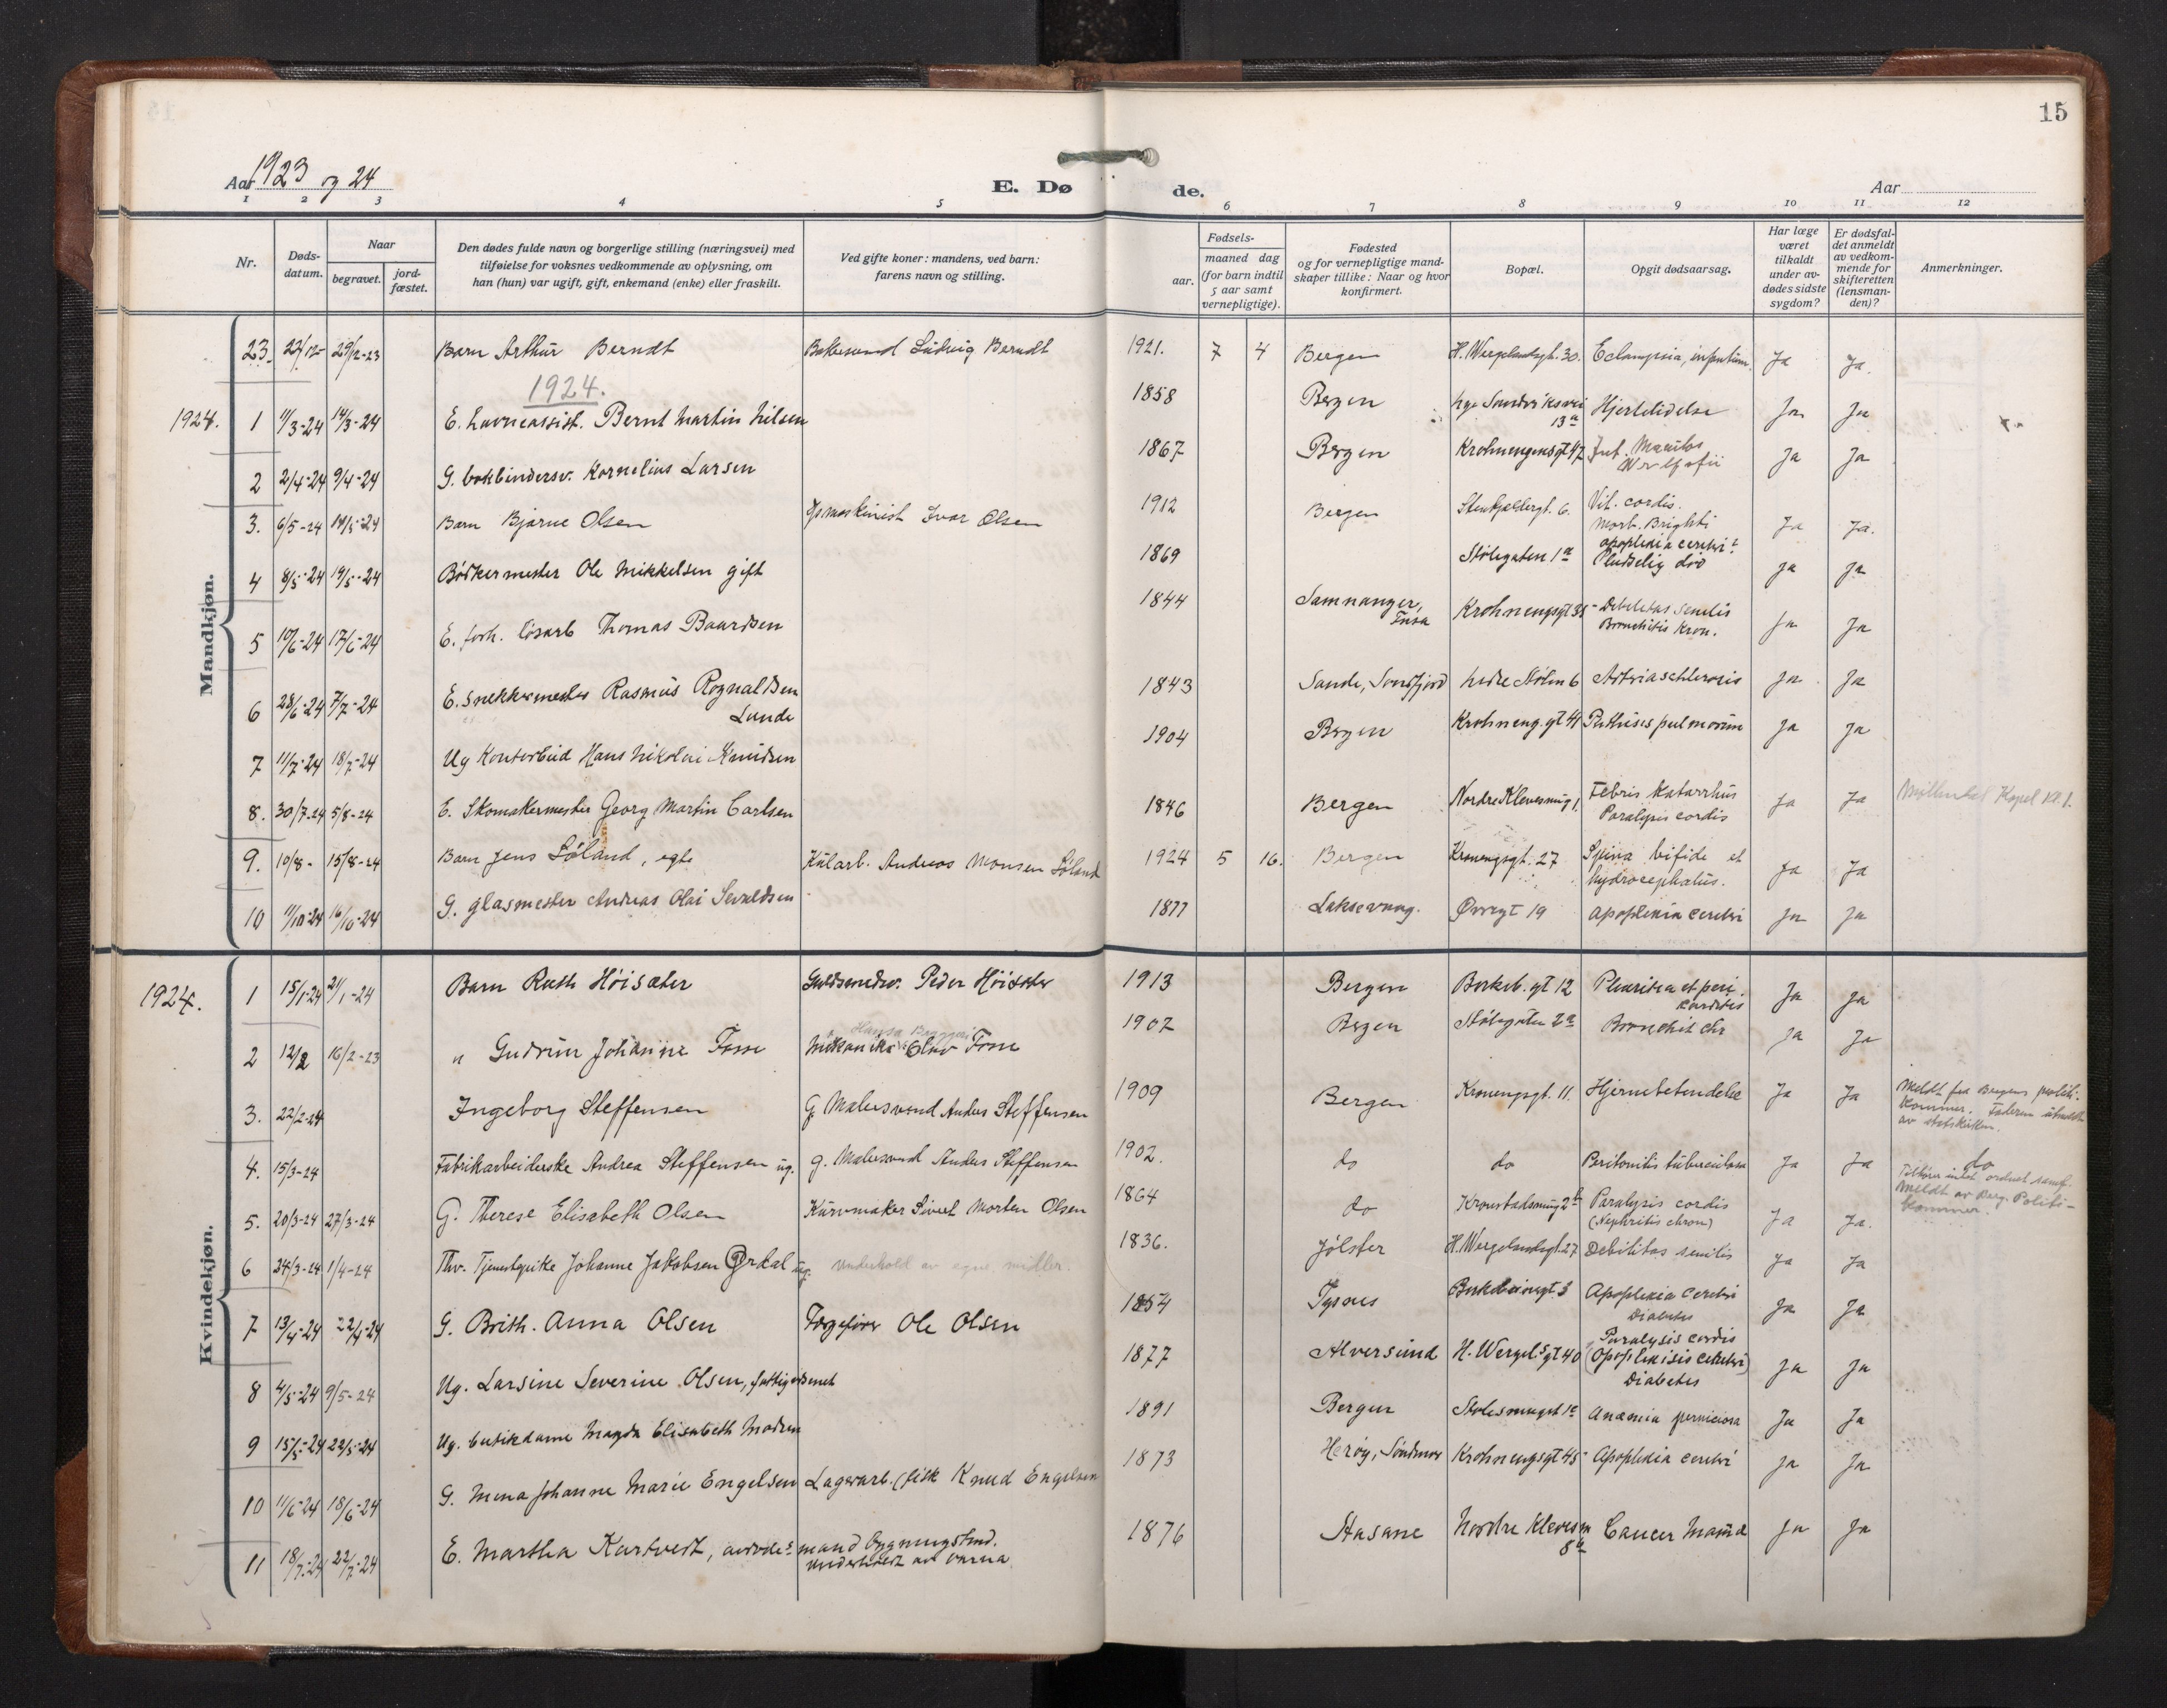 15
Aar 1923 og 24
E. Døde.
Aar
1 2 3 4 5 6 7 8 9 10 11 12
Nr.
Døds-
datum.
Naar
begravet.
jord-
fæstet.
Den dødes fulde navn og borgerlige stilling (næringsvei) med
tilføielse for voksnes vedkommende av oplysning, om
han (hun) var ugift, gift, enkemand (enke) eller fraskilt.
Ved gifte koner: mandens, ved barn:
farens navn og stilling.
Fødsels-
aar.
maaned dag
(for barn indtil
5 aar samt
vernepligtige).
Fødested
og for vernepligtige mand-
skaper tillike: Naar og hvor
konfirmert.
Bopæl.
Opgit dødsaarsag.
Har læge
været
tilkaldt
under av-
dødes sidste
sygdom?
Er dødsfal-
det anmeldt
av vedkom-
mende for
skifteretten
(lensman-
den)?
Anmerkninger.
Mandkjøn.
23. 29/12-23 Barn Arthur Berndt Bakersvend Ludvig Berndt 1921. 7 4 Bergen H. Wergelandsgt. 30. Eclampsia, Ja Ja.
1924.
1924. 1 11/3-24 14/3-24 E. havneassist. Bernt Martin Nilsen 1858 Bergen nye Sandviksvei 13a Hjertelidelse Ja Ja
2 2/4-24 9/4-24 G. bokbindersv. Kornelius Larsen 1867 Bergen Krohnengensgt 47 Ja Ja
3. 6/5-24 14/5-24 Barn Bjarne Olsen maskinist Ivar Olsen 1912 Bergen Stenkjeldergt. 6. Vit. cordis. Morb. Brighti Ja Ja.
4 8/5-24 14/5-24 Bødkermester Ole Mikkelsen gift 1869 Stølegaten 1a apoplexia cerebri? Pludselig død Ja Ja
5 10/6-24 17/6-24 E. forh. løsarb Thomas Baardsen 1844 Samnanger, Fusa Krohnengsgt 35 Debilitas senilis Bronchitis kron. Ja Ja
6 28/6-24 7/7-24 E. snekkermester Rasmus Rognaldsen Lunde 1843 Sande, Søndfjord nedre Stølen 6 Ja Ja
7 11/7-24 18/7-24 Ug Kontorbud Hans Nikolai Knudsen 1904 Bergen Krohneng.gt 41 Phthisis pulmonum Ja Ja
8. 30/7-24 5/8-24 E. Skomakermester Georg Martin Carlsen 1846 Bergen Nordre Klevesmug 1. Febris katarrhus Paralysis cordis Ja Ja Møllendal Kapel kl. 1.
9. 10/8- 15/8-24 Barn Jens Løland, egte Kularb. Andreas Monsen Løland 1924 5 16. Bergen Kronengsgt. 27 Spina bifida et hydrocephalus. Ja Ja
10 11/10-24 16/10-24 G. glasmester Andreas Olai Sevaldsen 1877 Laksevaag. Øvregt 19 apoplexia cerebri Ja Ja
Kvindekjøn.
1924. 1 15/1-24 21/1-24 Barn Ruth Høisæter Guldsmedsv. Peder Høisæter 1913 Bergen Berkeb.gt 12 Pleuritis et peri carditis Ja Ja
2 12/2 16/2-23 " Gudrun Johanne Fosse Mekaniker Olav Fosse 1907 Bergen Stølegaten 2a Bronchit chr Ja Ja
3. 22/2-24 Ingeborg Steffensen G. Malersvend Anders Steffensen 1909 Bergen Kronengsgt. 11. Hjernebetendelse Ja Ja Meldt fra Bergens politi-kammer. Faderen utmeldt av statskirken.
4. 15/3-24 Fabrikarbeiderske Andrea Steffensen ug. g. Malersvend Anders Steffensen 1902. do do Peritonitis tuberculosa Ja Ja do
5. 20/3-24 27/3-24 G. Therese Elisabeth Olsen Kurvmaker Sivert Morten Olsen 1864 do Kronstadsmug 2b Paralysis cordis (Nephritis chron) Ja Ja. Meldt av Berg. Politi-kammer.
6 24/3-24 1/4-24 Thv. Tjenestepike Johanne Jakobsen Ørdal ug. underhold av egne midler. 1836. Jølster H. Wergelandsgt. 27 Debilitas senilis Ja Ja
7 13/4-24 22/4-24 G. Brith. Anna Olsen Færgefører Ole Olsen 1854 Tysnes Berkebeinergt. 3 Apoplexia cerebri Diabetes Ja Ja
8 4/5-24 9/5-24 Ug. Larsine Severine Olsen, fattigvæsenet 1877 Alversund H. Wergel.s gt 40 Paralysis cordis (Apoplexisis cerebri) Diabetes Ja Ja
9 15/5-24 22/5-24 Ug. butikdame Magda Elisabeth Madsen 1891 Bergen Stølesmuget 1c Anæmia perniciosa Ja Ja
10 11/6-24 18/6-24 G. Mina Johanne Marie Engelsen Lagerarb. (fisk Knud Engelsen 1873 Herøy, Søndmør Krohnengsgt 45 Apoplexia cerebri Ja Ja
11 18/7-24 22/7-24 E. Martha Kartveit, avdødes mand bygningstømd. underholdt av barna 1876 Hasane Nordre Klevesm 8b Cancer Mamma Ja Ja